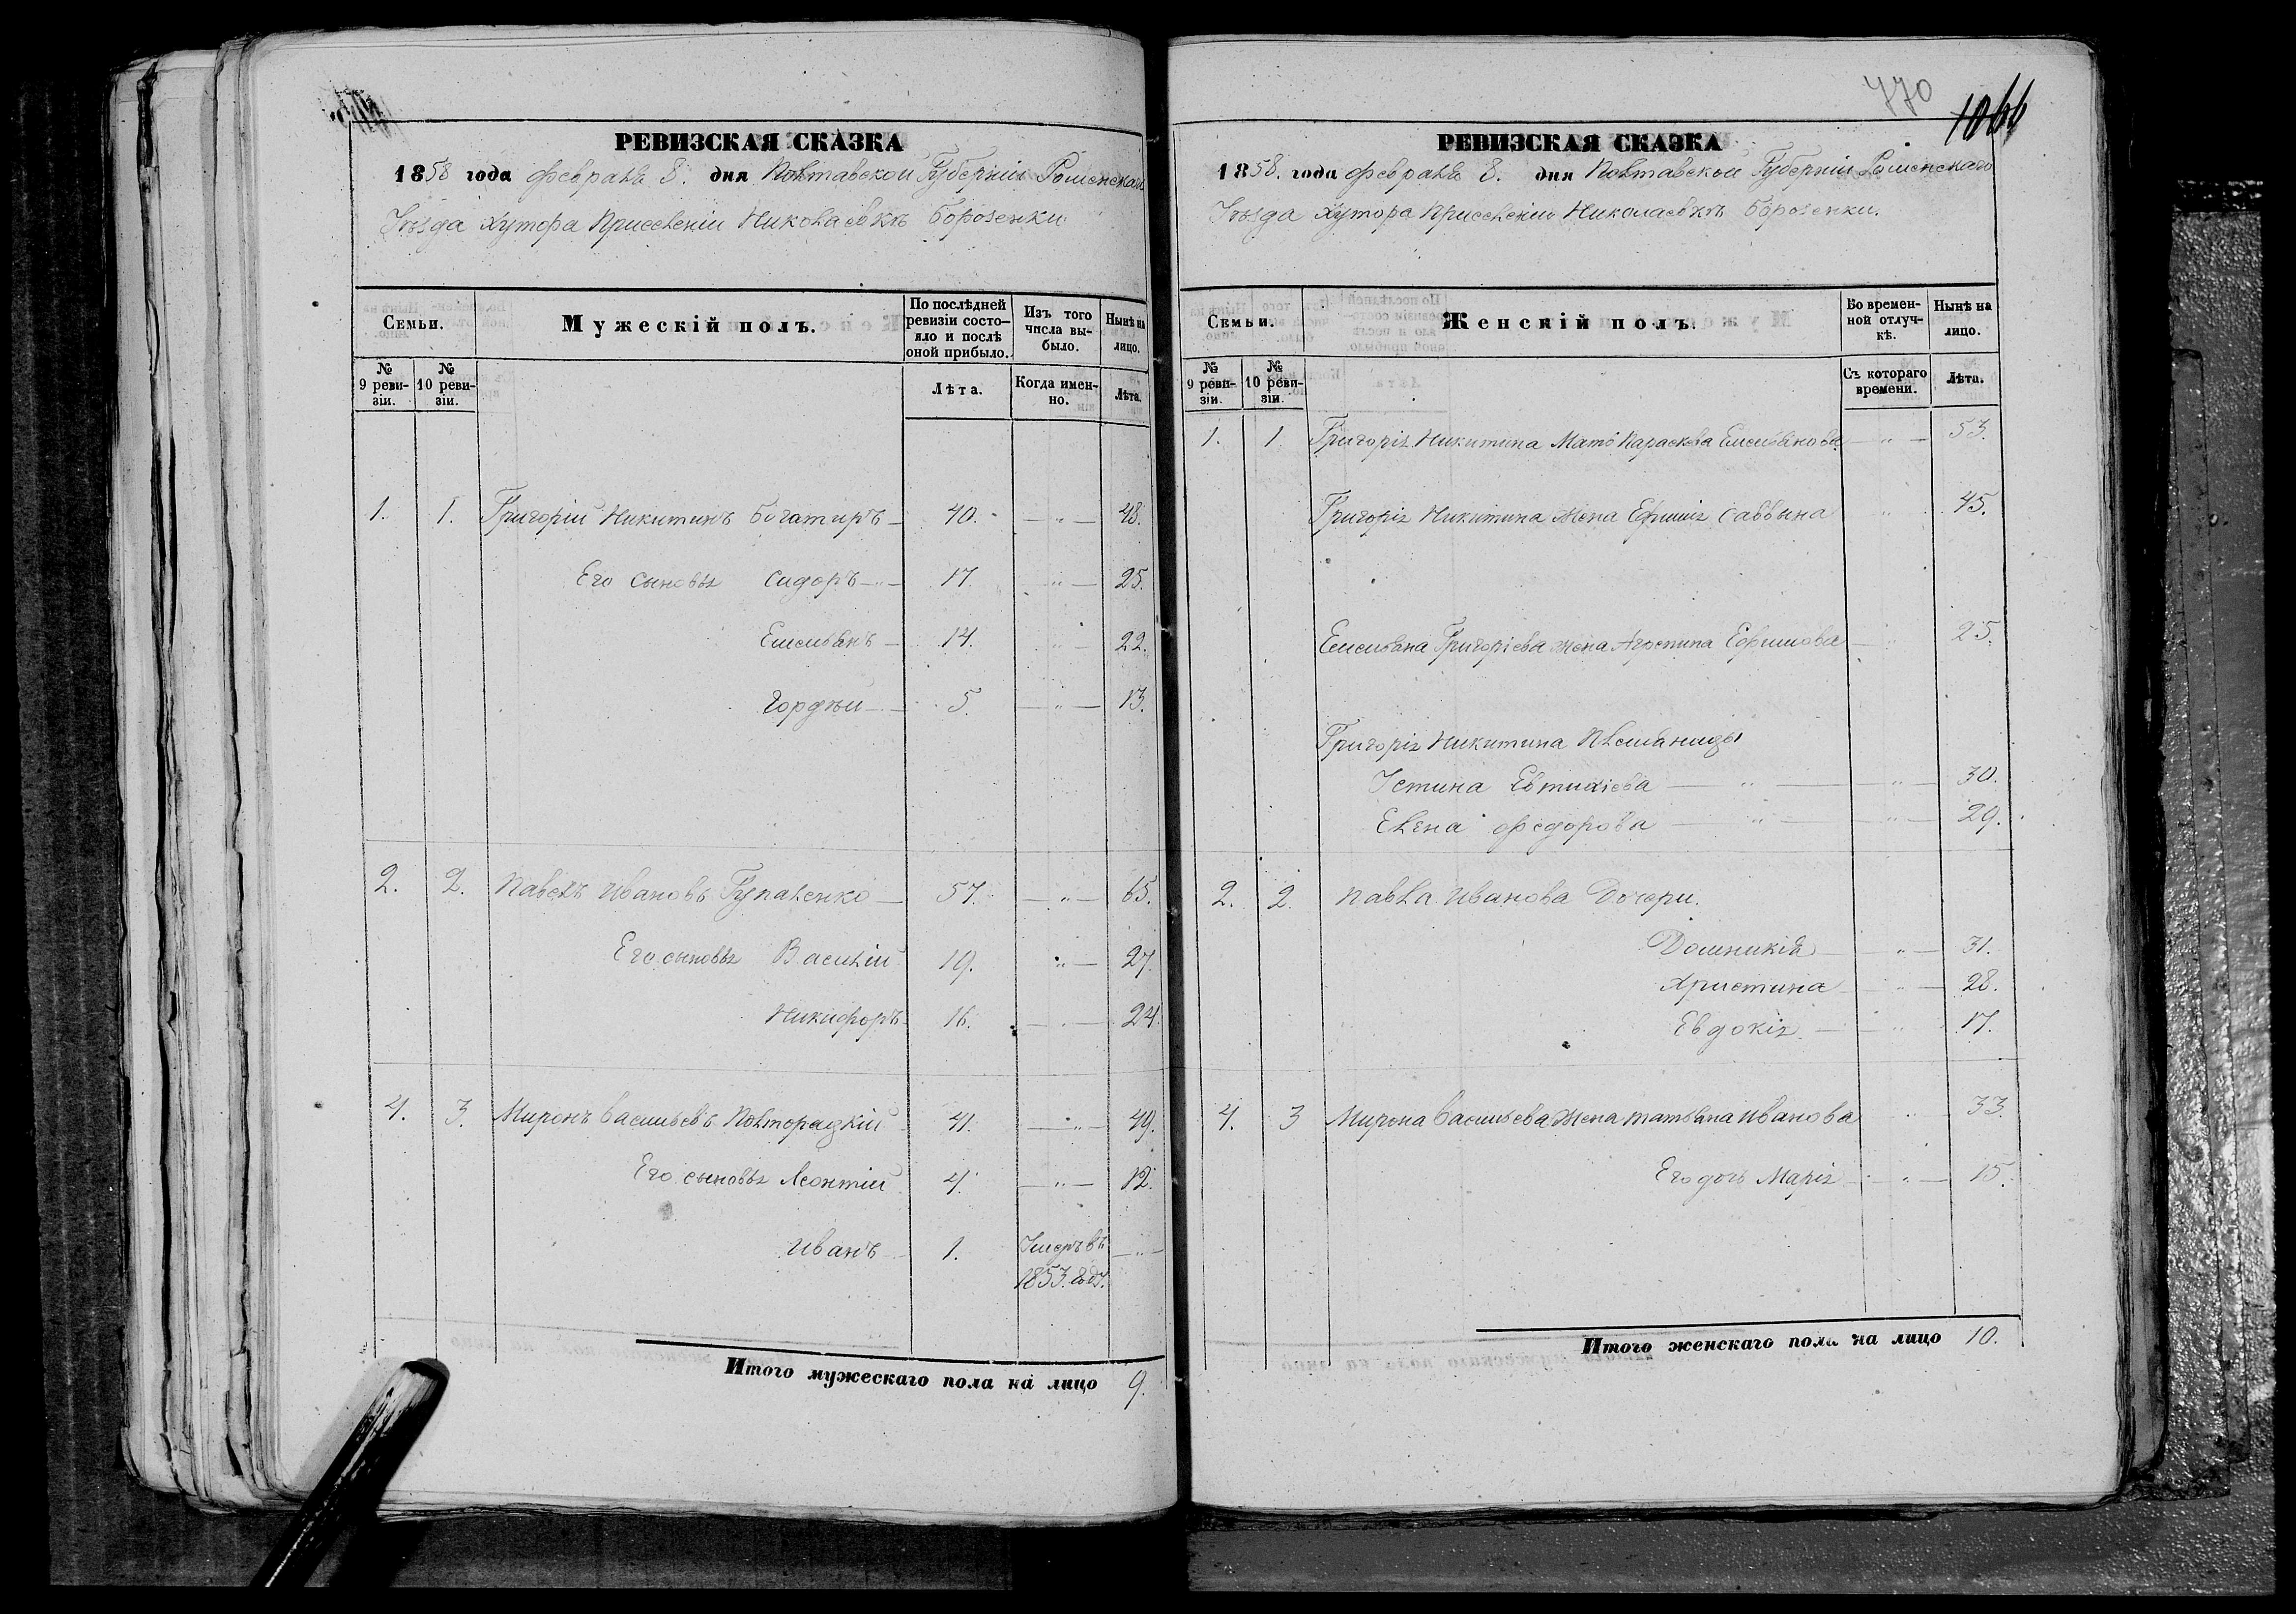 РЕВИЗСКАЯ СКАЗКА
1858 года февраля 8. дня Полтавской Губерніи Роменскаго
Уѣзда Хутора Приселеніи Николаевкѣ Борозенки
Семьи.
Мужескій полъ.
По послѣдней ревизіи состояло и послѣ оной прибыло.
Изъ того числа выбыло.
Нынѣ на лицо.
№ 9 ревизіи.
№ 10 ревизіи.
Лѣта.
Когда именно.
Лѣта.
1. 1. Григорій Никитинъ Богатиръ 40. — " — 48.
Его сыновья Сидоръ 17. " — 25.
Емельянъ 14. " — 22.
Гордѣй 5. — " — 13.
2. 2. Павелъ Ивановъ Гупаленко 57. — " — 65.
Его сыновья Василій 19. " — 27.
Никифоръ 16. — " — 24.
4. 3. Миронъ Васильевъ Полторацкій 41. — " — 49.
Его сыновья Леонтій 4. — " — 12.
Иванъ 1. Умеръ въ 1853. году. — " —
Итого мужескаго пола на лицо 9.
770
1066
РЕВИЗСКАЯ СКАЗКА
1858. года февраля 8. дня Полтавской Губерніи Роменскаго
Уѣзда Хутора Приселеніи Николаевкѣ Борозенки.
Семьи.
Женскій полъ.
Во временной отлучкѣ.
Нынѣ на лицо.
№ 9 ревизіи.
№ 10 ревизіи.
Съ котораго времени.
Лѣта.
1. 1. Григорія Никитина Мать Параскева Емельянова — " — 53.
Григорія Никитина жена Ефимія Саввына " 45.
Емельяна Григоріева жена Агрепина Ефимова — " 25.
Григорія Никитина Племяницы
Устина Евтихіева — " — " — 30.
Елена Федорова — " — " — 29.
2. 2. Павла Иванова Дочери.
Домникія — " — 31.
Христина — " — 28.
Евдокія — " 17.
4. 3 Мирона Васильева Жена Татьяна Иванова " 33.
Его дочь Марія — " — 15.
Итого женскаго пола на лицо 10.